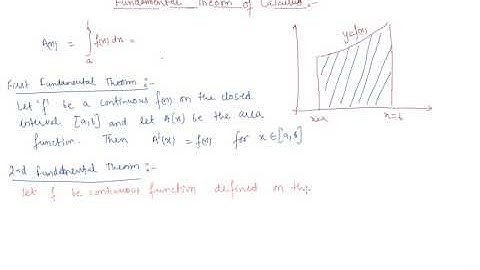 Fundamental Theorem of Calculus :-
A(x) = ∫ f(x) dx =
a
y=f(x)
x=a
x=b
First Fundamental Theorem :-
Let 'f' be a continuous f(x) on the closed
interval [a,b] and let A(x) be the area
function. Then A'(x) = f(x) for x ∈ [a,b]
2nd Fundamental Theorem :-
Let f be continuous function defined on the